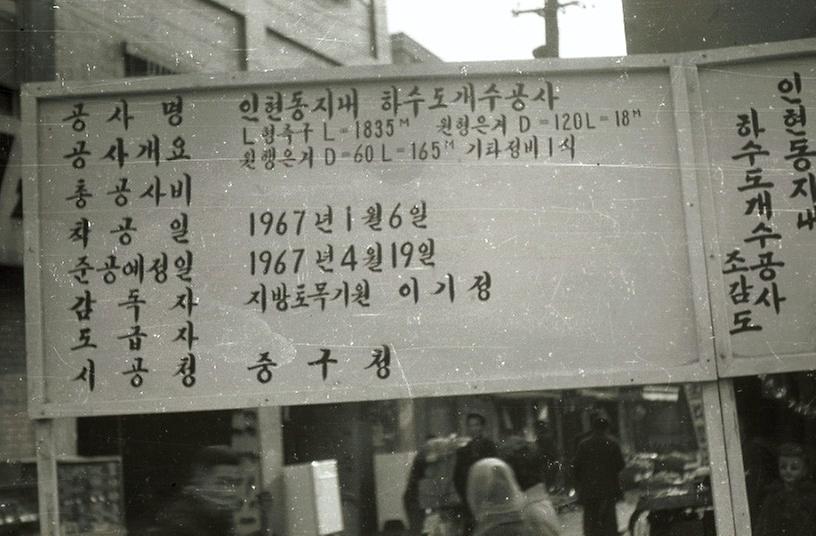 공사명 인현동지내 하수도개수공사
공사개요 L형측구 L=1835M 원형은거 D=120 L=18M
원형은거 D=60 L=165M 기타정비1식
총공사비
착공일 1967년1월6일
준공예정일 1967년4월19일
감독자 지방토목기원 이기정
도급자
시공청 중구청
인현동지내
하수도개수공사
조감도